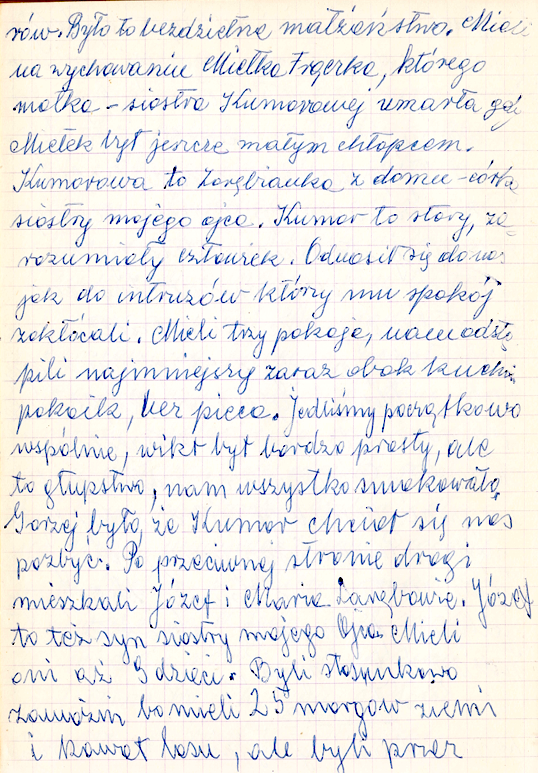 rów. Było to bezdzietne małżeństwo. Mieli
na wychowaniu Mietka Frączka, którego
matka - siostra Kumorowej umarła gdy
Mietek był jeszcze małym chłopcem.
Kumorowa to Zarębianka z domu - córka
siostry mojego ojca. Kumor to stary, za
rozumiały człowiek. Odnosił się do nas
jak do intruzów którzy mu spokój
zakłócali. Mieli trzy pokoje, nam odstą
pili najmniejszy zaraz obok kuchni
pokoik, bez pieca. Jedliśmy początkowo
wspólnie, wikt był bardzo prosty, ale
to głupstwo, nam wszystko smakowało
Gorzej było, że Kumor chciał się nas
pozbyć. Po przeciwnej stronie drogi
mieszkali Józef i Maria Zarębowie. Józef
to też syn siostry mojego Ojca Mieli
oni aż 9 dzieci. Byli stosunkowo
zamożni bo mieli 25 morgów ziemi
i kawał lasu, ale byli przez